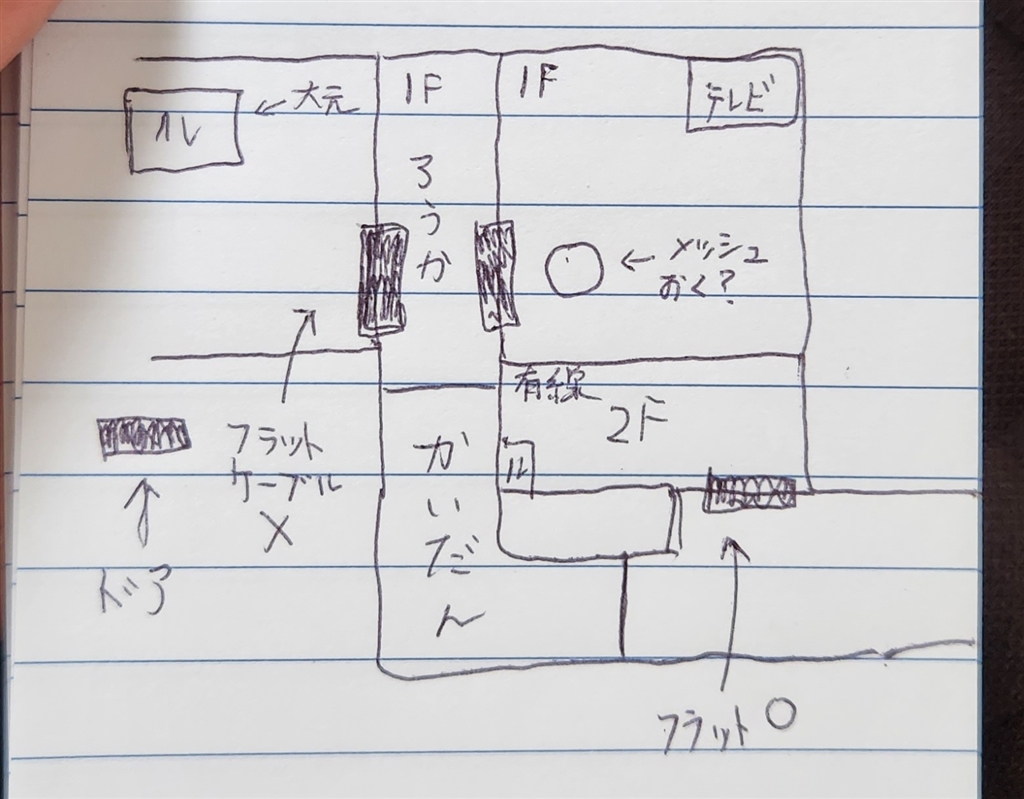 1F
1F
テレビ
ル
←大元
ろうか
←メッシュ
おく?
有線
2F
ル
フラット
ケーブル
X
かいだん
ドア
フラット○